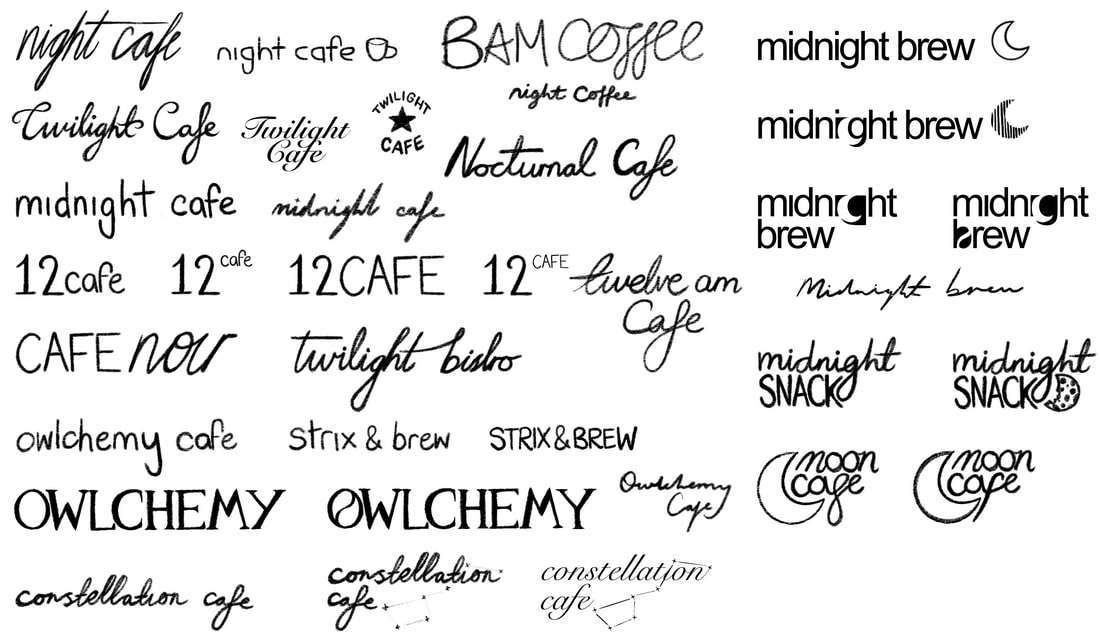 night cafe
night cafe
BAM Coffee
night Coffee
Twilight Cafe
Twilight
Cafe
TWILIGHT
CAFE
Nocturnal Cafe
midnight cafe
midnight cafe
12cafe
12 cafe
12CAFE
12 CAFE
twelve am
Cafe
CAFE nour
twilight bistro
owlchemy cafe
strix & brew
STRIX&BREW
OWLCHEMY
OWLCHEMY
Owlchemy
Cafe
constellation cafe
constellation
cafe
constellation
cafe
midnight brew
midnight brew
midnight
brew
midnight
brew
Midnight brew
midnight
SNACK
midnight
SNACK
moon
cafe
moon
cafe